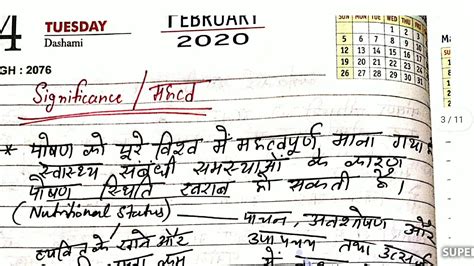 4 TUESDAY
Dashami
FEBRUARY
2020
SUN MON TUE WED THU FRI
1 2 3
5 6 7 8 9 10
12 13 14 15 16 17
19 20 21 22 23 24
26 27 28 29 30 31
GH : 2076
3 / 11
Significance / महत्व
* पोषण को पूरे विश्व में महत्वपूर्ण माना गया
स्वास्थ्य संबंधी समस्याओं के कारण
पोषण स्थिति खराब हो सकती है।
(Nutritional Status) — पाचन, अवशोषण और
व्यक्ति के खाने और उपापचय तथा उत्सर्
में
SUPE